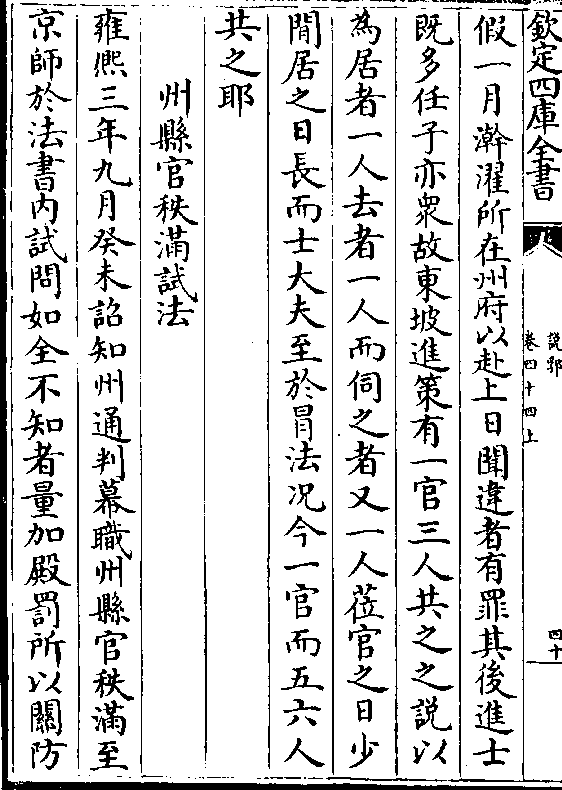 欽定四庫全書
說郛
卷四十四上
四十
假一月澣濯所在州府以赴上日聞違者有罪其後進士
既多任子亦衆故東坡進策有一官三人共之之說以
為居者一人去者一人而伺之者又一人蒞官之日少
閒居之日長而士大夫至於冒法况今一官而五六人
共之耶
州縣官秩滿試法
雍熙三年九月癸未詔知州通判幕職州縣官秩滿至
京師於法書內試問如全不知者量加殿罰所以關防